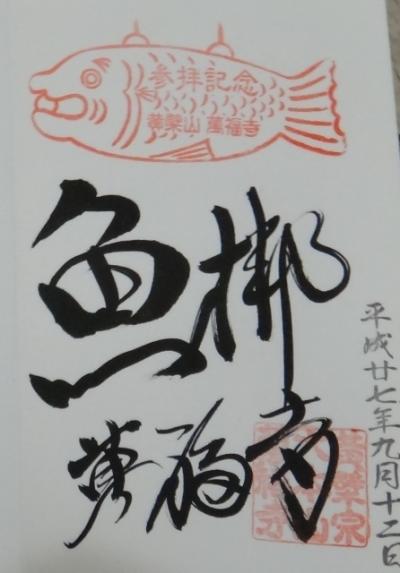 参拝記念
黄檗山 萬福寺
魚梆
萬福寺
平成廿七年九月十二日
黄檗宗
大本山
萬福寺